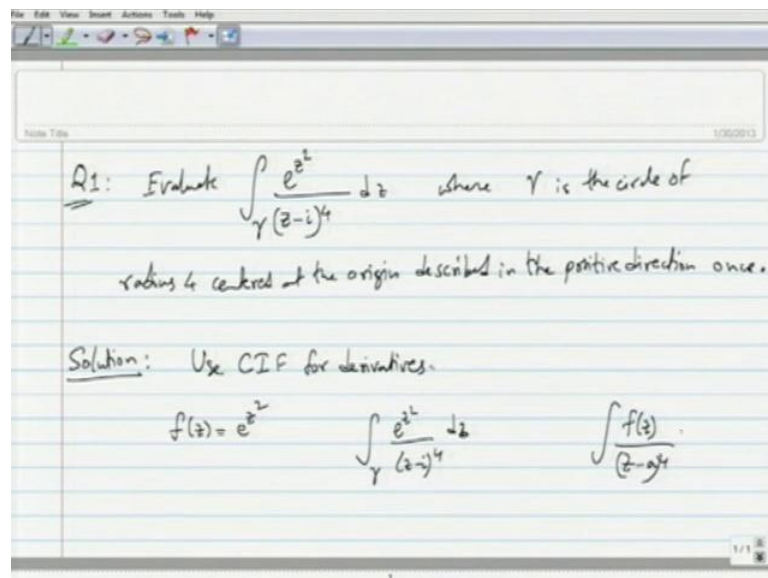 File Edit View Insert Actions Tools Help
Note Title
1/30/2013
Q1: Evaluate ∫_γ e^{z^2}/(z-i)^4 dz where γ is the circle of
radius 4 centered at the origin described in the positive direction once.
Solution: Use CIF for derivatives.
f(z) = e^{z^2} ∫_γ e^{z^2}/(z-i)^4 dz ∫ f(z)/(z-a)^4
1/1